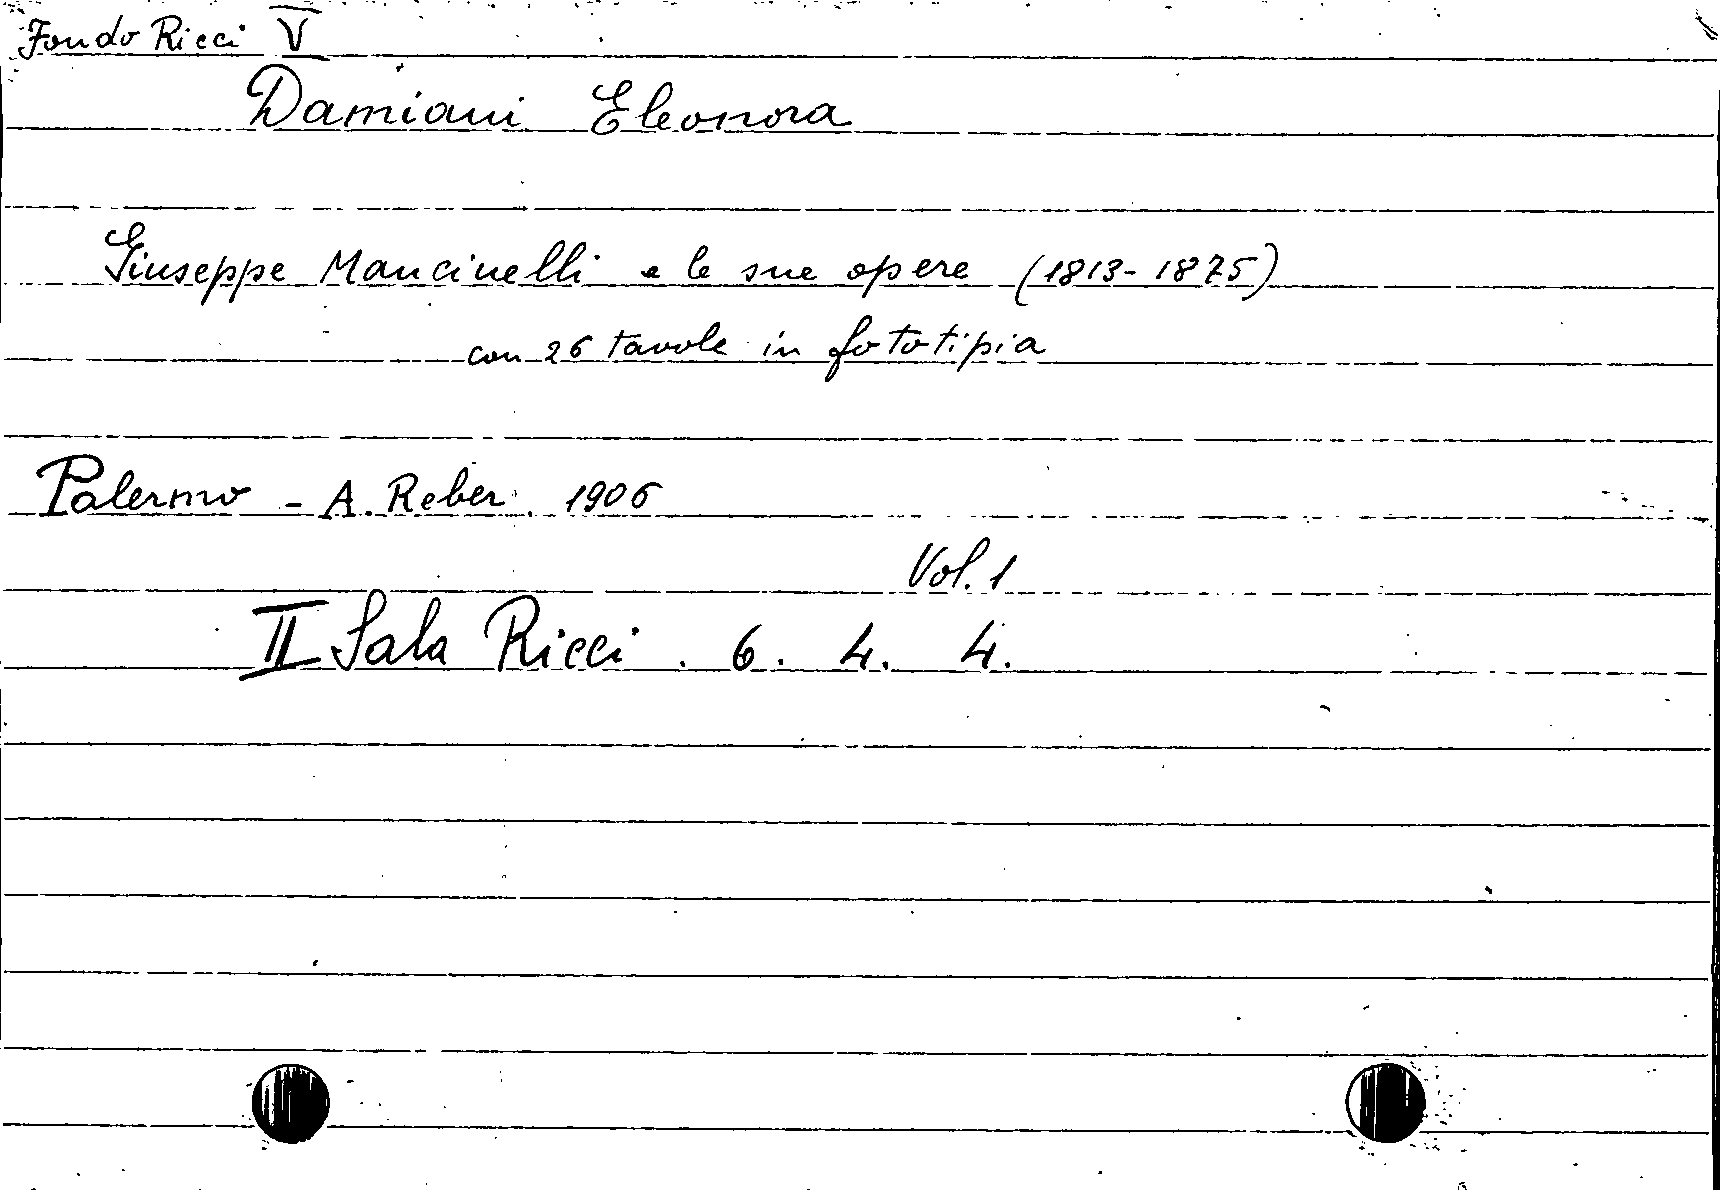 Fondo Ricci V
Damiani Eleonora
Giuseppe Mancinelli e le sue opere (1813-1875)
con 26 tavole in fototipia
Palermo - A. Reber. 1906
Vol. 1
II Sala Ricci . 6. 4. 4.